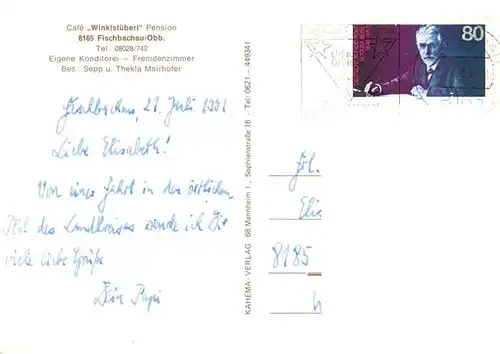 Café „Winklstüberl" Pension
8165 Fischbachau/Obb.
Tel. 08028/742
Eigene Konditorei – Fremdenzimmer
Bes.: Sepp u. Thekla Mairhofer
Fischbachau, 21. Juli 1991
Liebe Elisabeth!
Von einer Fahrt in den östlichen
Teil des Landkreises sende ich Dir
viele liebe Grüße
Dein Papi
KAHEMA-VERLAG 68 Mannheim 1, Sophienstraße 16 - Tel.: 0621 - 449341
80
Frl.
Elis
8185